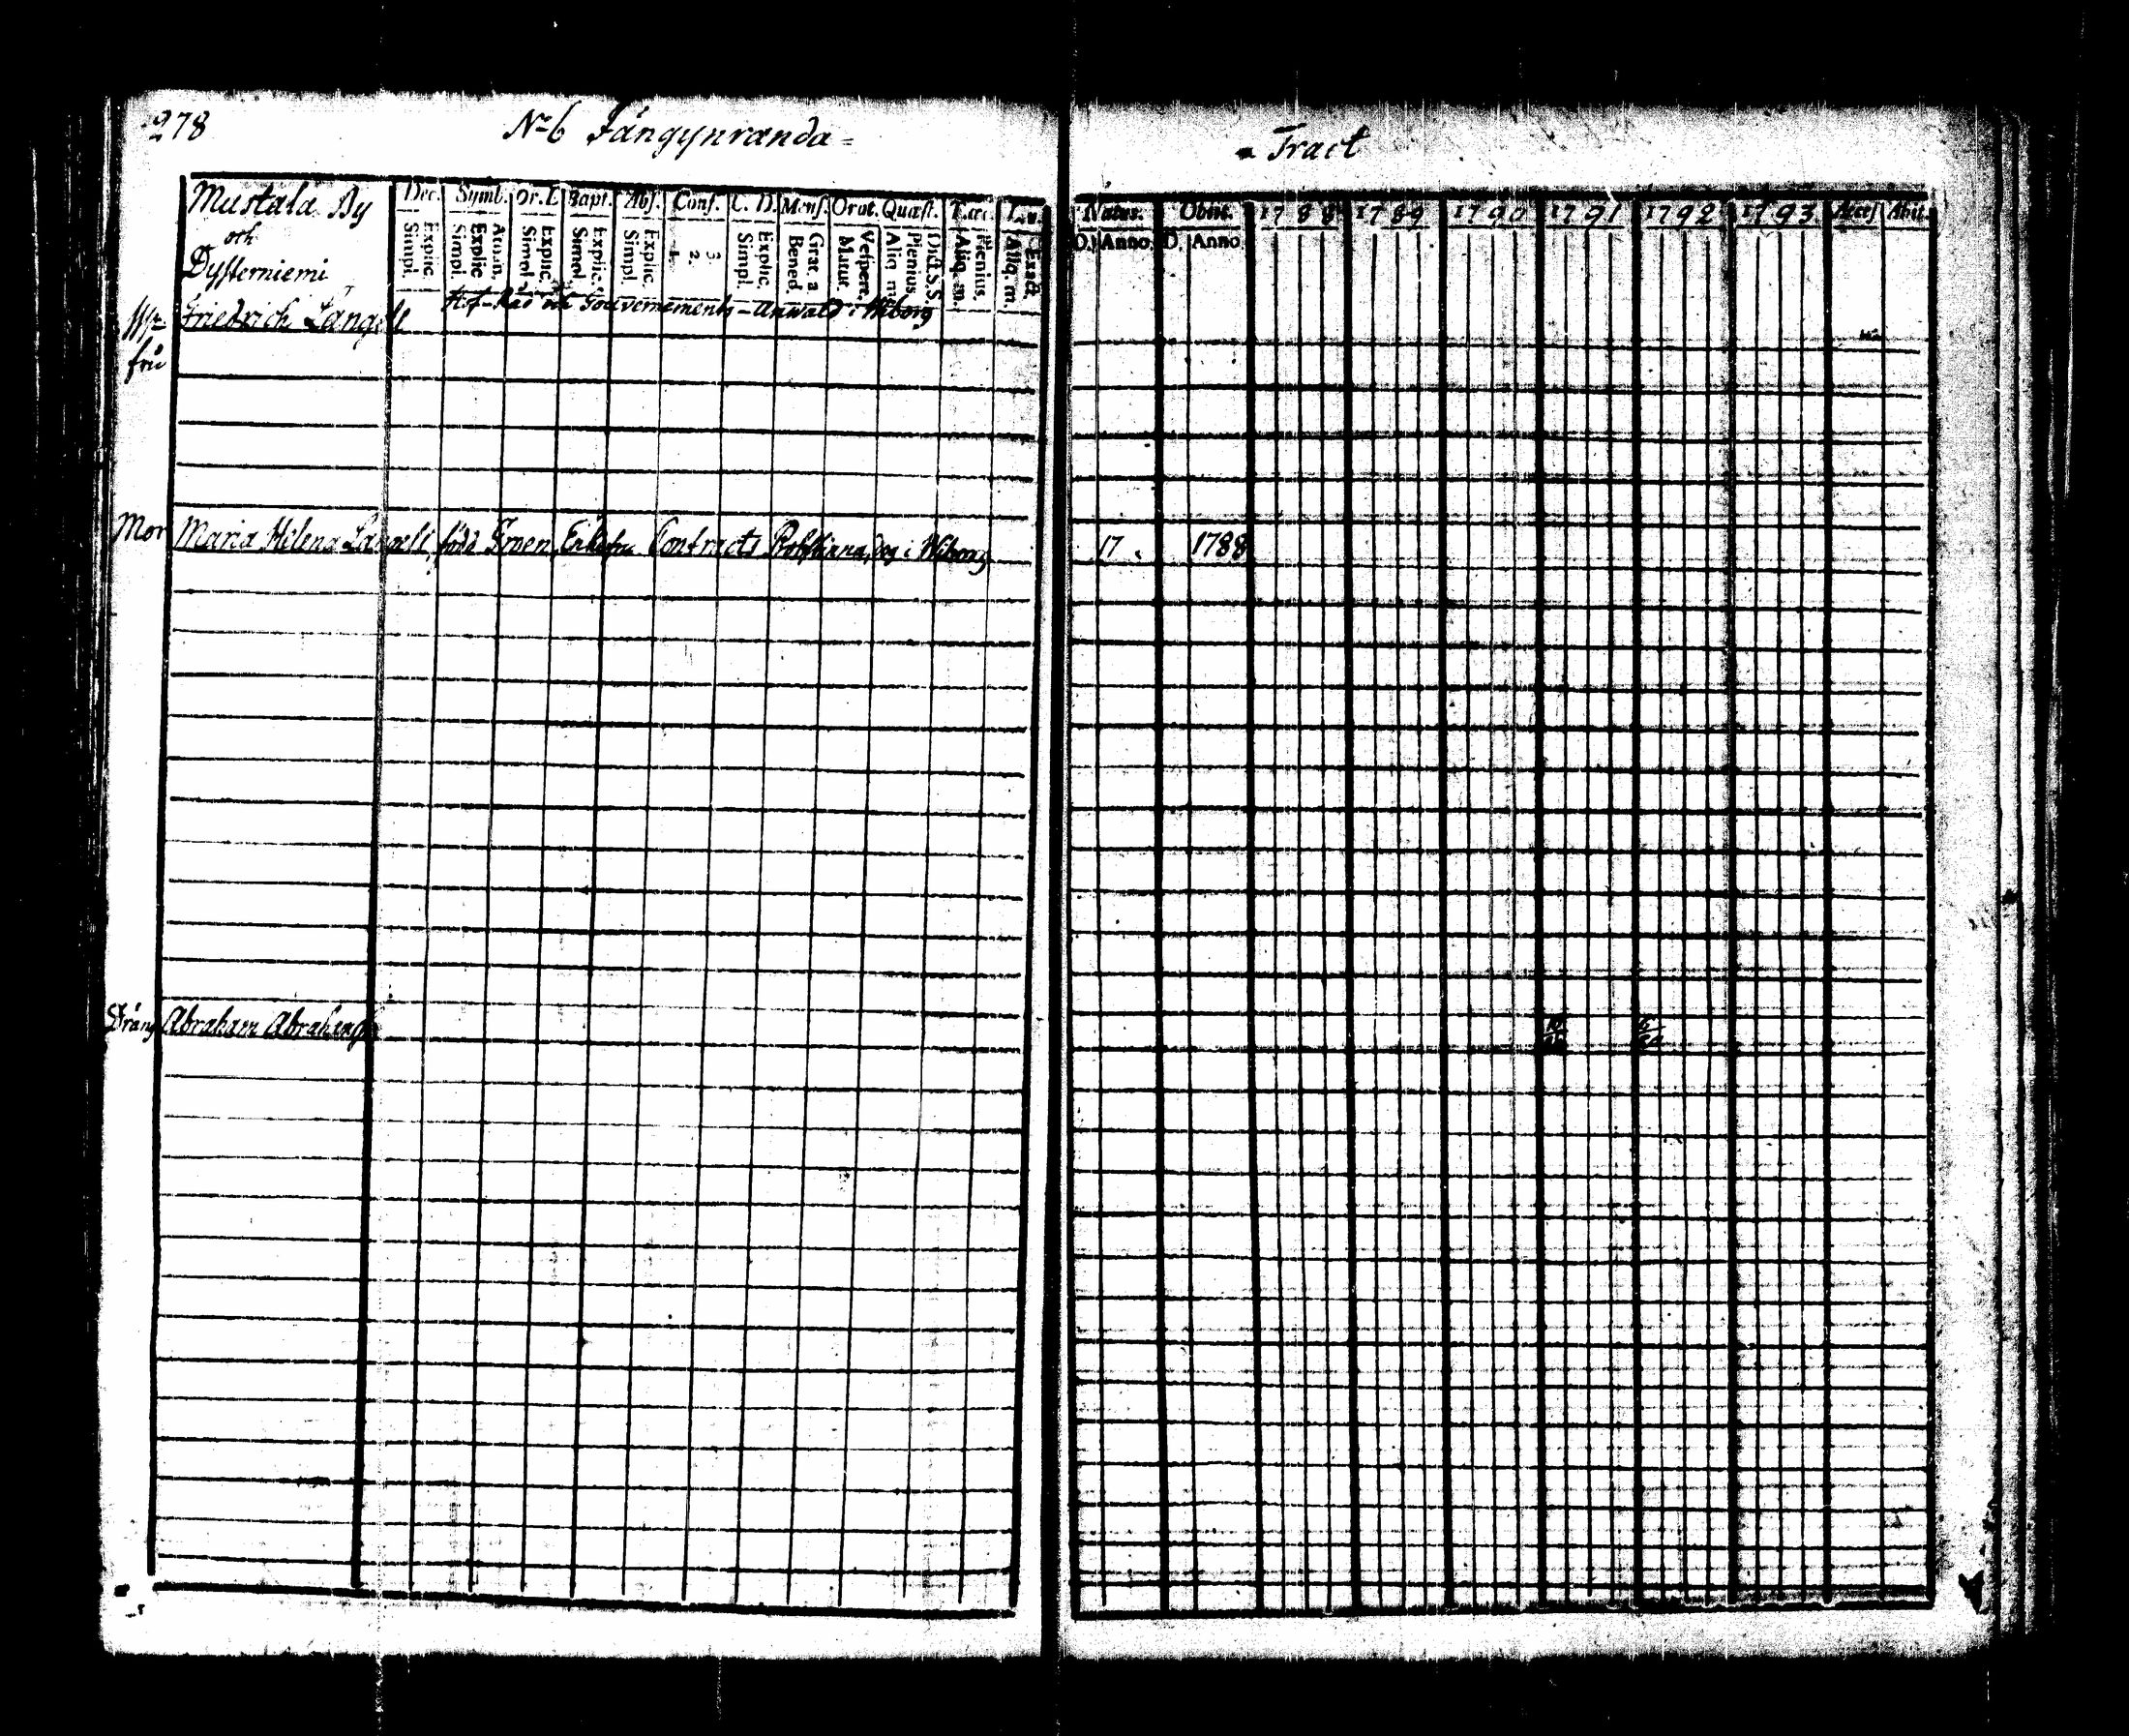 278 No 6 Jängynranda =
= Tract
Mustala By
och
Dysterniemi
Dec. Symb. Or. D. Bapt. Abs. Conf. C. D. Mens. Orat. Quæst.
Explic. Simpl. Athan. Explic. Simpl. Explic. Simpl. Explic. Simpl. Explic. Simpl. 3. 2. 1. Explic. Simpl. Grat. a. Bened. Vespert. Matut. Dict. S.S. Plenius. Aliq. m. Plenius. Aliq. m. Exact. Aliq. m.
Natus. Obiit. 1788 1789 1790 1791 1792 1793 Acces Abit.
D. Anno. D. Anno
Friedrich Langell Hof-Råd och Gouvernements-Anwald i Wiborg
fru
Mor Maria Helena Langell, född Groen, Enkefru Contracts Probstinna, dog i Wiborg 17 . 1788
Dräng Abraham Abrahamss